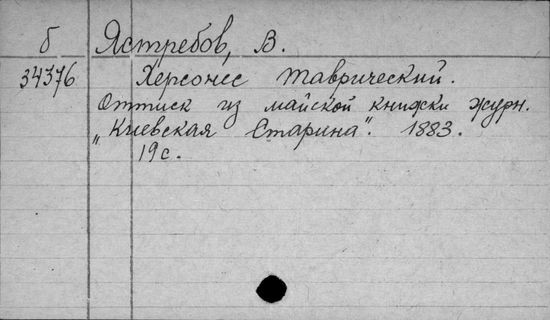 б Ястребов, В.
34376 Херсонес Таврический.
Оттиск из майской книжки журн.
„Киевская Старина". 1883.
19 с.